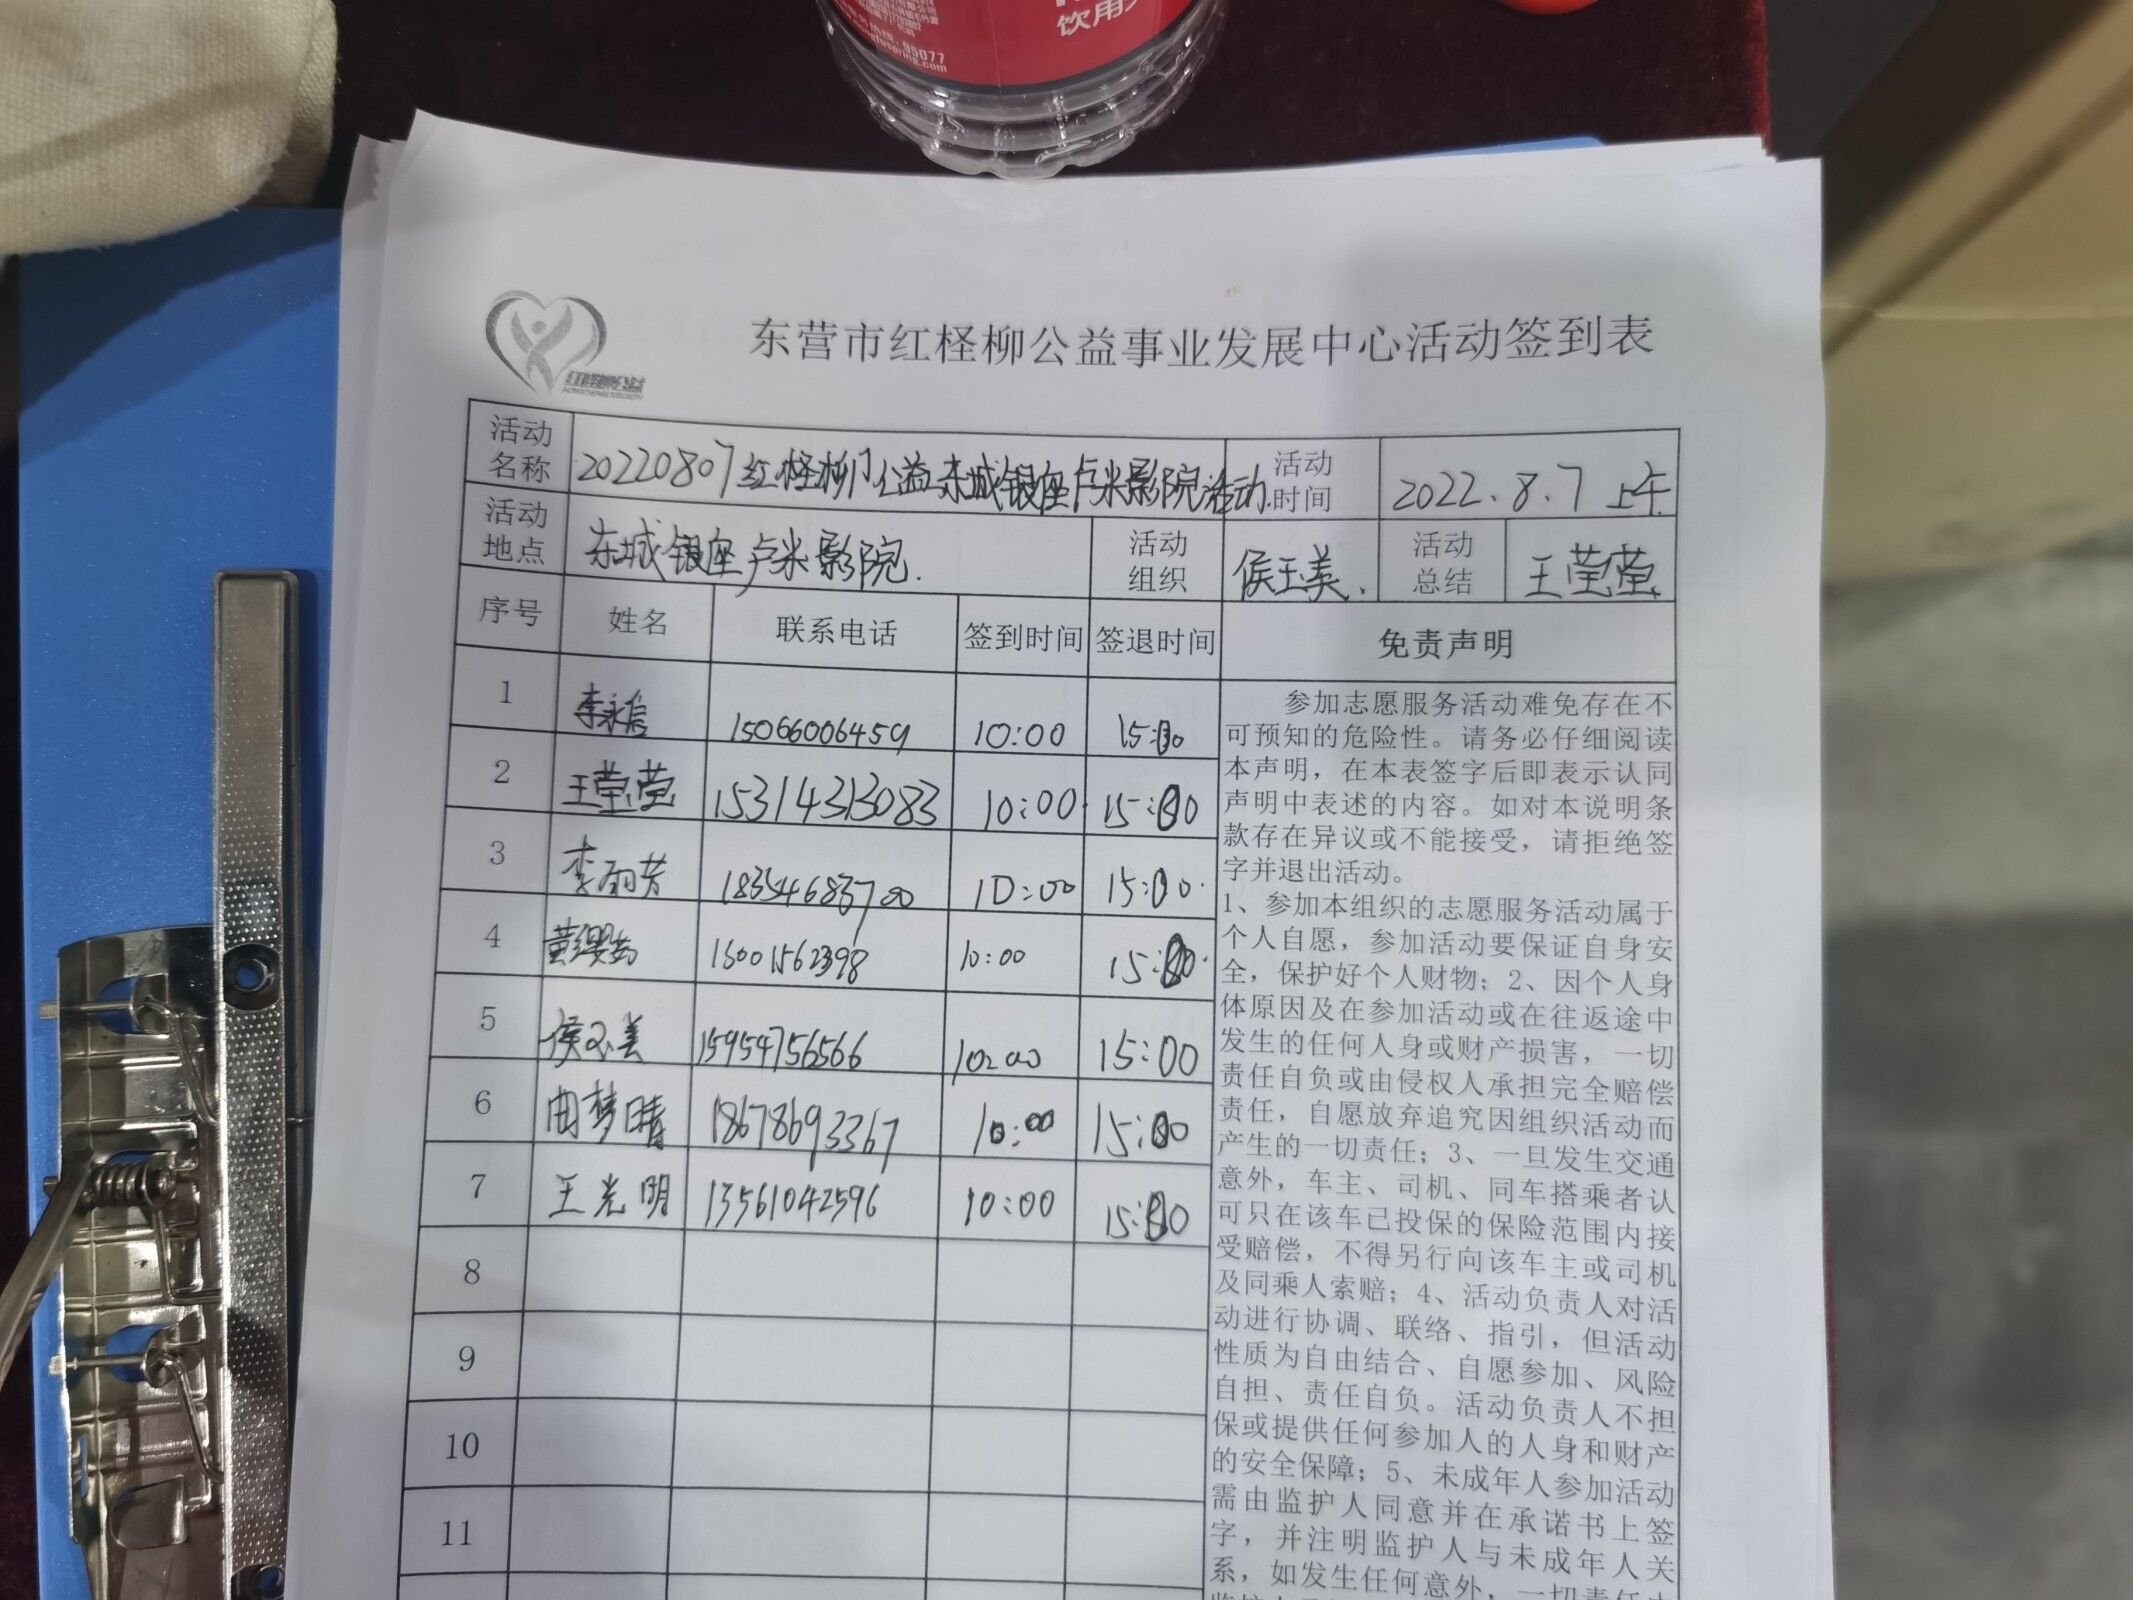 饮用
95077
东营市红柽柳公益事业发展中心活动签到表
红柽柳公益
活动名称 20220807红柽柳公益东城银座卢米影院活动. 活动时间 2022.8.7 上午
活动地点 东城银座卢米影院. 活动组织 侯玉美. 活动总结 王莹莹
序号 姓名 联系电话 签到时间 签退时间 免责声明
1 李永信 15066006459 10:00 15:00
2 王莹莹 15314313083 10:00 15:00
3 李丽芳 18354683700 10:00 15:00
4 15001562398 10:00 15:00
5 侯玉美 15954756566 10:00 15:00
6 曲梦晴 18678693367 10:00 15:00
7 王光明 13561042596 10:00 15:00
8
9
10
11
参加志愿服务活动难免存在不
可预知的危险性。请务必仔细阅读
本声明，在本表签字后即表示认同
声明中表述的内容。如对本说明条
款存在异议或不能接受，请拒绝签
字并退出活动。
1、参加本组织的志愿服务活动属于
个人自愿，参加活动要保证自身安
全，保护好个人财物；2、因个人身
体原因及在参加活动或在往返途中
发生的任何人身或财产损害，一切
责任自负或由侵权人承担完全赔偿
责任，自愿放弃追究因组织活动而
产生的一切责任；3、一旦发生交通
意外，车主、司机、同车搭乘者认
可只在该车已投保的保险范围内接
受赔偿，不得另行向该车主或司机
及同乘人索赔；4、活动负责人对活
动进行协调、联络、指引，但活动
性质为自由结合、自愿参加、风险
自担、责任自负。活动负责人不担
保或提供任何参加人的人身和财产
的安全保障；5、未成年人参加活动
需由监护人同意并在承诺书上签
字，并注明监护人与未成年人关
系，如发生任何意外，一切责任由